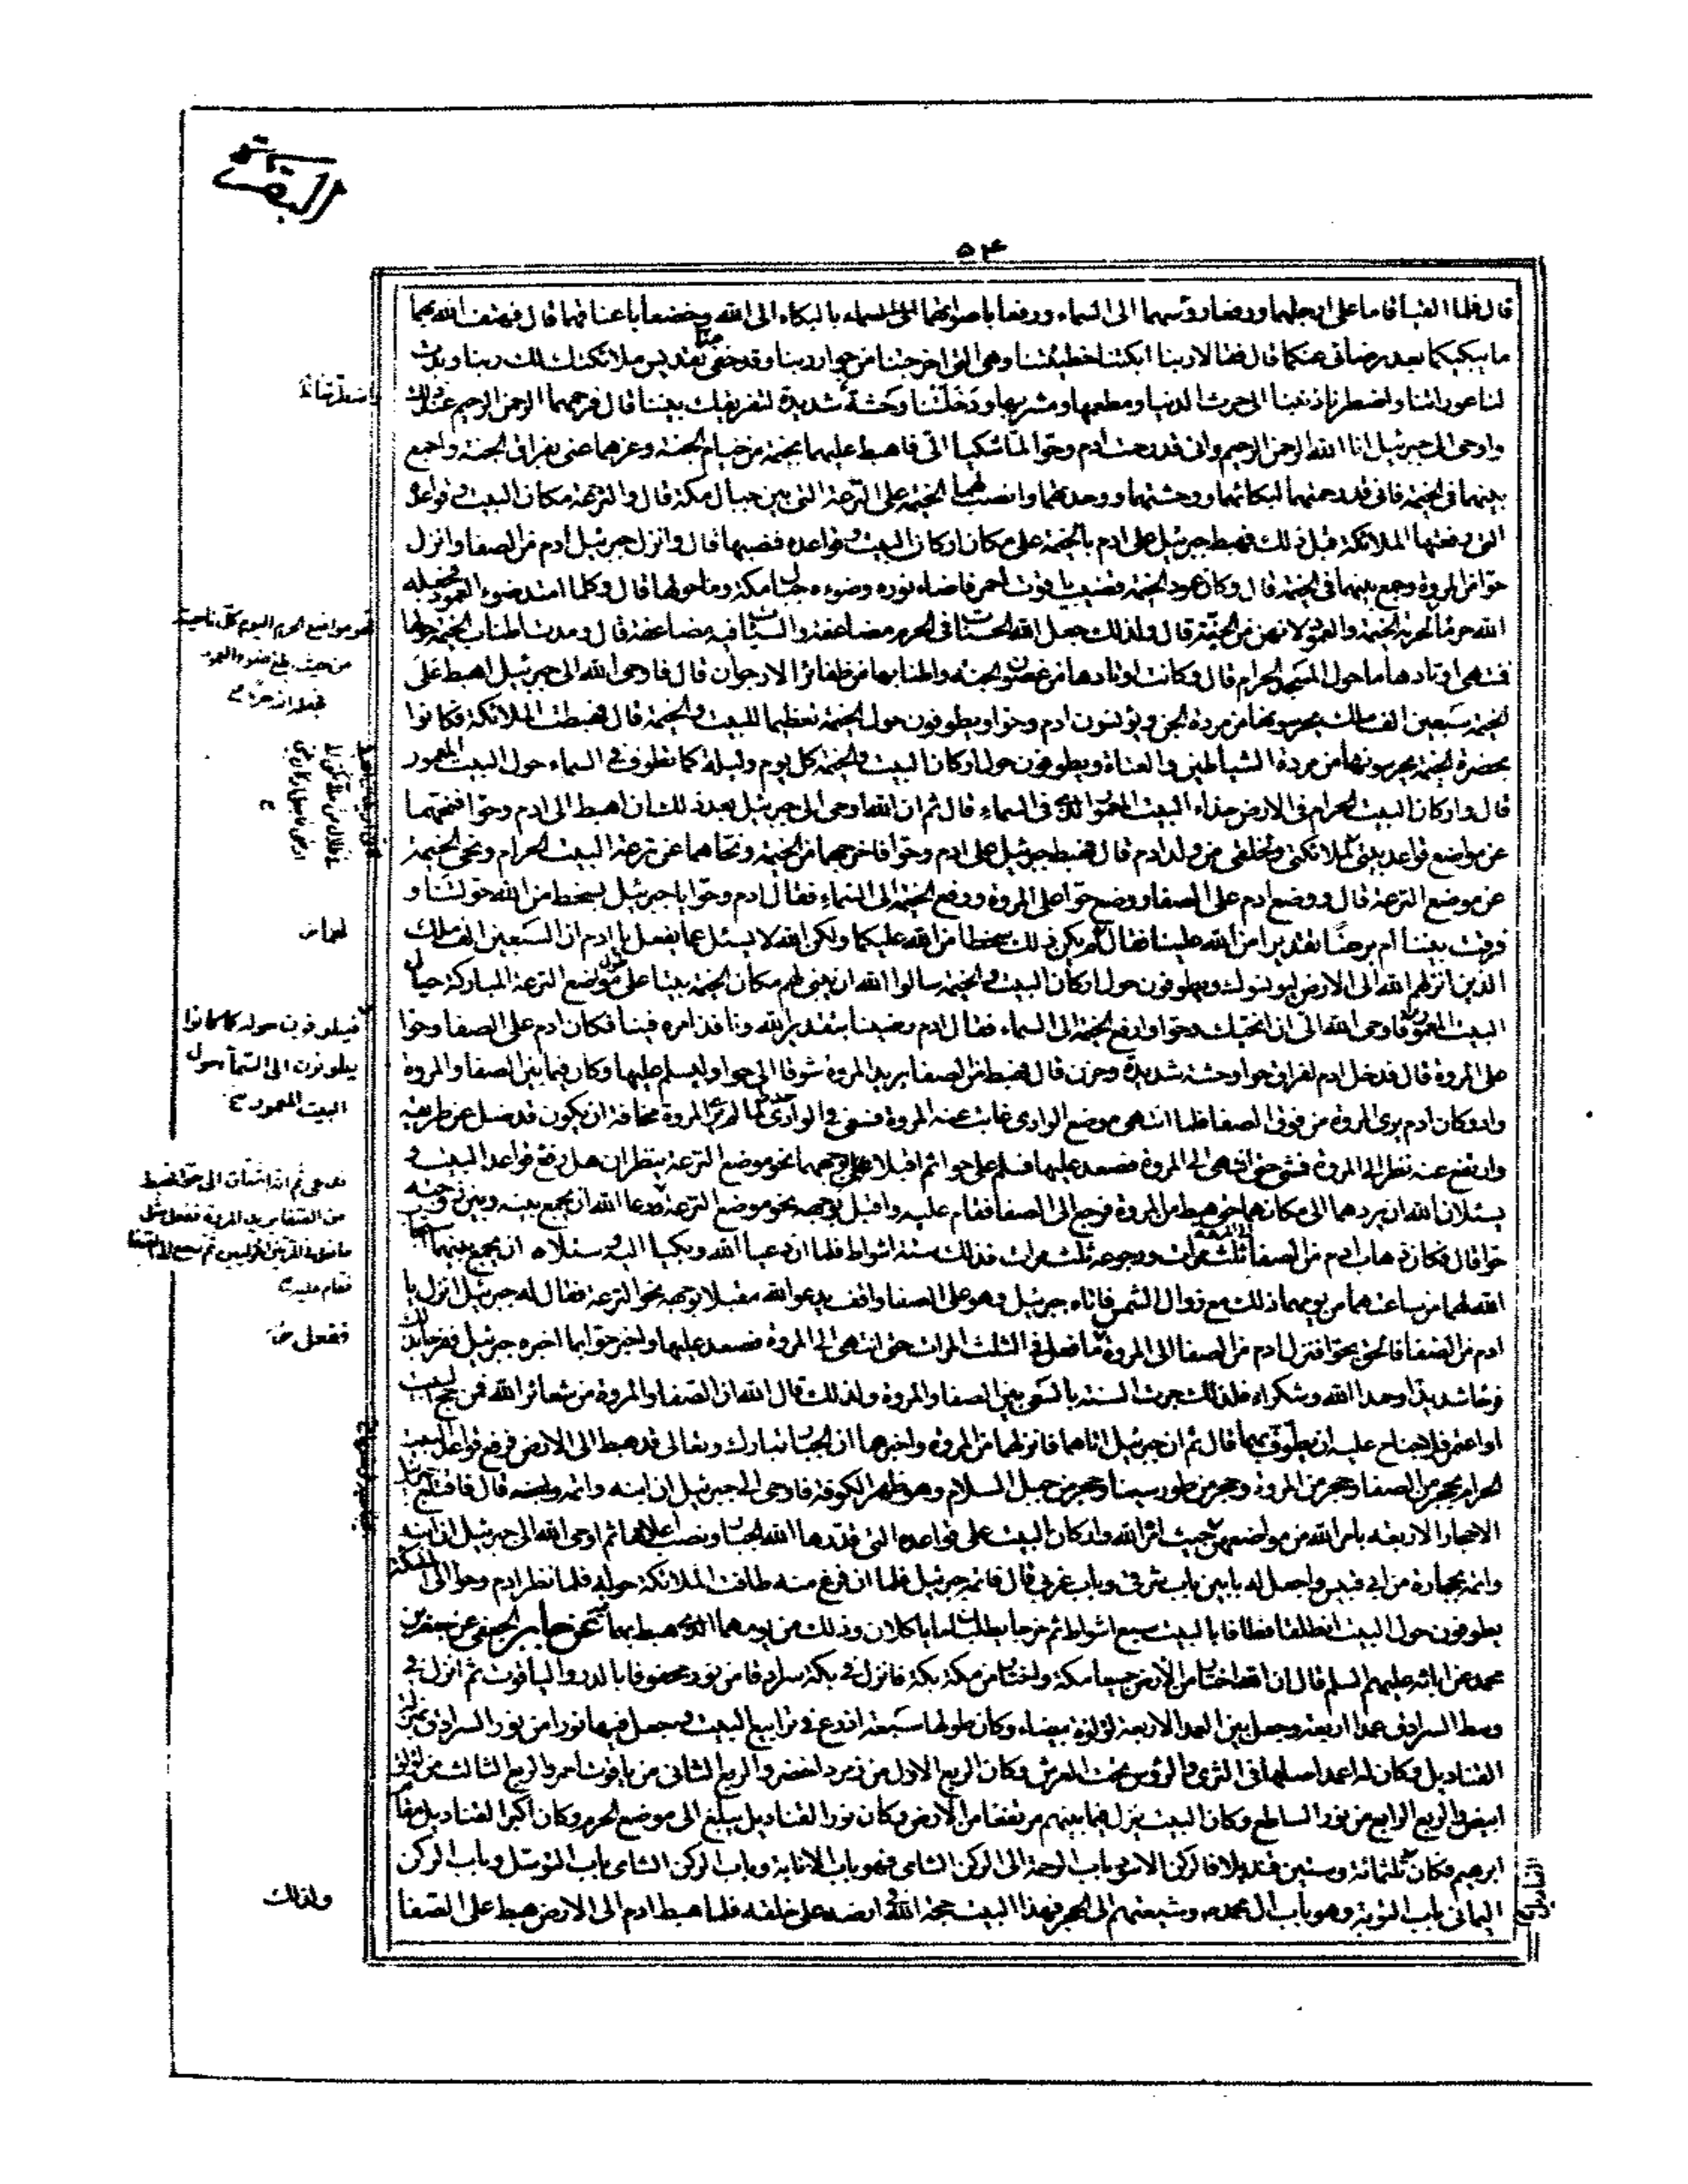 البقرة
٥٤
قال فلما التقيا قاما على ارجلهما ورفعا رؤسهما الى السماء ورفعا باصواتهما الى السماء بالبكاء الى الله وخضعا باعناقهما قال فهتف الله بهما
ما يبكيكما بعد رضائى عنكما قال فقالا ربنا ابكتنا خطيئتنا وهى التى اخرجتنا من جوار ربنا وقد خفى عنا تقديس ملائكتك لك ربنا وبدت
لنا عوراتنا واضطرنا ذنبنا الى حرث الدنيا ومطعمها ومشربها ودخلتنا وحشة شديدة لتفريقك بيننا قال فرحمهما الرحمن الرحيم عند ذلك
واوحى الى جبرئيل انا الله الرحمن الرحيم وانى قد رحمت ادم وحوا لما شكيا الى فاهبط عليهما بخيمة من خيام الجنة وعزهما عنى بفراق الجنة واجمع
بينهما فى الخيمة فانى قد رحمتهما لبكائهما ووحشتهما ووحدتهما وانصب لهما الخيمة على الترعة التى بين جبال مكة قال والترعة مكان البيت وقواعده
التى رفعتها الملائكة قبل ذلك فهبط جبرئيل على ادم بالخيمة على مكان اركان البيت وقواعده فنصبها قال وانزل جبرئيل ادم من الصفا وانزل
حوا من المروة وجمع بينهما فى الخيمة قال وكان عمود الخيمة قضيب ياقوت احمر فاضاء نوره وضوءه جبال مكة وما حولها قال وكلما امتد ضوء العمود فجعله
الله حرما لحرمة الخيمة والعمود لانهن من الجنة قال ولذلك جعل الله الحسنات فى الحرم مضاعفة والسيئات فيه مضاعفة قال ومدت اطناب الخيمة حولها
فمنتهى اوتادها ما حول المسجد الحرام قال وكانت اوتادها من غصون الجنة واطنابها من ظفائر الارجوان قال فاوحى الله الى جبرئيل اهبط على
الخيمة سبعين الف ملك يحرسونها من مردة الجن ويونسون ادم وحوا ويطوفون حول الخيمة تعظيما للبيت والخيمة قال فهبطت الملائكة فكانوا
بحضرة الخيمة يحرسونها من مردة الشياطين والعتاة ويطوفون حول اركان البيت والخيمة كل يوم وليلة كما تطوف فى السماء حول البيت المعمور
قال واركان البيت الحرام فى الارض حذاء البيت المعمور الذى فى السماء قال ثم ان الله اوحى الى جبرئيل بعد ذلك ان اهبط الى ادم وحوا فنحهما
عن مواضع قواعد بيتى لملائكتى ولخلقى من ولد ادم قال فهبط جبرئيل على ادم وحوا فاخرجهما من الخيمة ونحاهما عن ترعة البيت الحرام ونحى الخيمة
عن موضع الترعة قال ووضع ادم على الصفا ووضع حوا على المروة ورفع الخيمة الى السماء فقال ادم وحوا يا جبرئيل بسخط من الله حولتنا و
فرقت بيننا ام برضا تقديرا من الله علينا فقال لهما لم يكن ذلك سخطا من الله عليكما ولكن الله لا يسئل عما يفعل يا ادم ان السبعين الف ملك
الذين انزلهم الله الى الارض ليونسوك ويطوفون حول اركان البيت والخيمة سالوا الله ان يبنى لهم مكان الخيمة بيتا على موضع الترعة المباركة حيال
البيت المعمور فاوحى الله الى ان انحيك وحوا وارفع الخيمة الى السماء فقال ادم رضينا بتقدير الله ونافذ امره فينا فكان ادم على الصفا وحوا
على المروة قال فدخل ادم لفراق حوا وحشة شديدة وحزن قال فهبط من الصفا يريد المروة شوقا الى حوا وليسلم عليها وكان فيما بين الصفا والمروة
واد وكان ادم يرى المروة من فوق الصفا فلما انتهى موضع الوادى غابت عنه المروة فسعى فى الوادى لما لم ير المروة مخافة ان يكون قد ضل عن طريقه
وارتفع عنه نظر الى المروة فمشى حتى انتهى الى المروة فصعد عليها فسلم على حوا ثم اقبلا بوجههما نحو موضع الترعة ينظران هل رفع قواعد البيت و
يسئلان الله ان يردهما الى مكانهما حتى هبط من المروة فرجع الى الصفا فقام عليه واقبل بوجهه نحو موضع الترعة فدعا الله ان يجمع بينه وبين زوجته
حوا قال فكان ذهاب ادم من الصفا الى المروة ثلث مرات ورجوعه ثلث مرات فذلك ستة اشواط فلما ان دعيا الله وبكيا اليه وسئلاه ان يجمع بينهما استجاب
الله لهما من ساعتهما من يومهما ذلك مع زوال الشمس فاتاه جبرئيل وهو على الصفا واقف يدعو الله مقبلا بوجهه نحو الترعة فقال له جبرئيل انزل يا
ادم من الصفا فالحق بحوا فنزل ادم من الصفا الى المروة ما فعل فى الثلث المرات حتى انتهى الى المروة فصعد عليها واخبر حوا بما اخبره جبرئيل ففرحا بذلك
فرحا شديدا وحمدا الله وشكراه فلذلك جرت السنة بالسعى بين الصفا والمروة ولذلك قال الله ان الصفا والمروة من شعائر الله فمن حج البيت
او اعتمر فلا جناح عليه ان يطوف بهما قال ثم ان جبرئيل اتاهما فانزلهما من المروة واخبرهما ان الجبار تبارك وتعالى قد هبط الى الارض فرفع قواعد البيت
الحرام بحجر من الصفا وحجر من المروة وحجر من طور سينا وحجر من جبل السلام وهو ظهر الكوفة فاوحى الى جبرئيل ان ابنه واتمه قال فاقتلع جبرئيل
الاحجار الاربعة بامر الله من مواضعهن حيث امر الله واركان البيت على قواعده التى قدرها الله الجبار ونصب اعلامها ثم اوحى الله الى جبرئيل ان ابنه
واتمه بحجارة من ابى قبيس واجعل له بابين باب شرقى وباب غربى قال فاتمه جبرئيل فلما ان فرغ منه طافت الملائكة حوله فلما نظر ادم وحوا الى الملائكة
يطوفون حول البيت انطلقا فطافا بالبيت سبع اشواط ثم خرجا يطلبان ما ياكلان وذلك من يومهما الذى هبط بهما فيه عن جابر الجعفى عن جعفر بن
محمد عن ابائه عليهم السلم قال ان الله اختار من الارض جميعا مكة واختار من مكة بكة فانزل فى بكة سرادقا من نور محفوفا بالدر والياقوت ثم انزل فى
وسط السرادق عمدا اربعة وجعل بين العمد الاربعة لؤلؤة بيضاء وكان طولها سبعة اذرع فى ترابيع البيت وجعل فيها نورا من نور السرادق بمنزلة
القناديل وكان له اعمد اصلها فى الثرى والرؤس تحت العرش وكان الربع الاول من زمرد اخضر والربع الثانى من ياقوت احمر والربع الثالث من لؤلؤ
ابيض والربع الرابع من نور الساطع وكان البيت ينزل فيما بينهم مرتفعا من الارض وكان نور القناديل يبلغ الى موضع الحرم وكان اكبر القناديل مقام
ابرهيم فكان ثلثمائة وستين قنديلا فالركن الاسود باب الرحمة الى الركن الشامى فهو باب الانابة وباب الركن الشامى باب التوسل وباب الركن
اليمانى باب التوبة وهو باب ال محمد وشيعتهم الى الحجر فهذا البيت حجة الله فى ارضه على خلقه فلما هبط ادم الى الارض هبط على الصفا
فهو مواضع الحرم اليوم كل ناحية
من حيث بلغ ضوء العمود
فيطوفون حوله كما كانوا
يطوفون فى السماء حول
البيت المعمور
ففعل
ولذلك